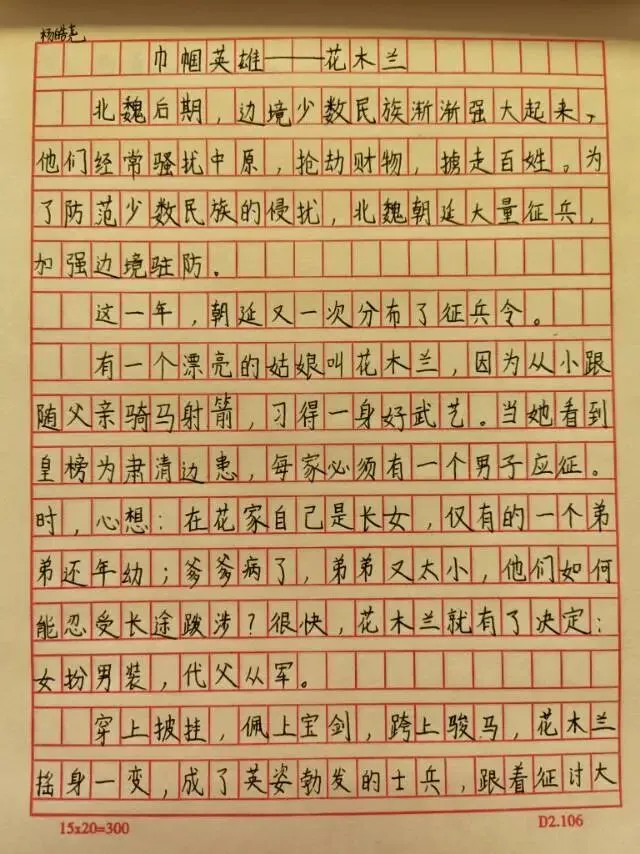 杨皓尧
巾帼英雄——花木兰
北魏后期，边境少数民族渐渐强大起来，
他们经常骚扰中原，抢劫财物，掳走百姓。为
了防范少数民族的侵扰，北魏朝延大量征兵，
加强边境驻防。
这一年，朝延又一次分布了征兵令。
有一个漂亮的姑娘叫花木兰，因为从小跟
随父亲骑马射箭，习得一身好武艺。当她看到
皇榜为肃清边患，每家必须有一个男子应征。
时，心想：在花家自己是长女，仅有的一个弟
弟还年幼；爹爹病了，弟弟又太小，他们如何
能忍受长途跋涉？很快，花木兰就有了决定：
女扮男装，代父从军。
穿上披挂，佩上宝剑，跨上骏马，花木兰
摇身一变，成了英姿勃发的士兵，跟着征讨大
15x20=300
D2.106